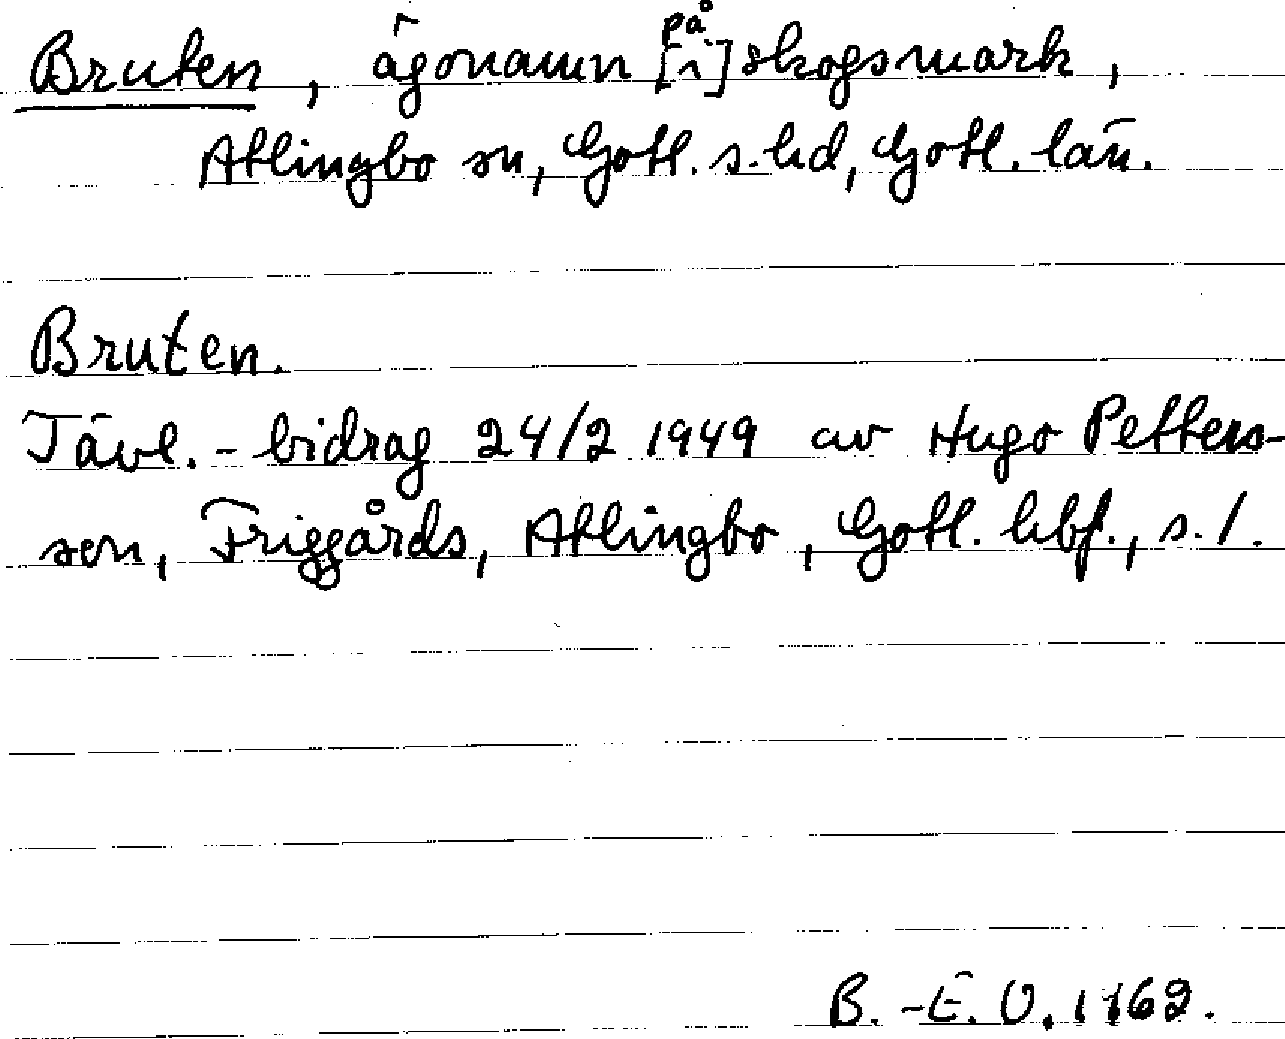 Bruten, ägonamn på [i] skogsmark,
Atlingbo sn, Gotl. s. hd, Gotl. län.
Bruten.
Tävl. - bidrag 24/2 1949 av Hugo Petters-
son, Friggårds, Atlingbo, Gotl. hbf., s. 1.
B. -E. O. 1162.